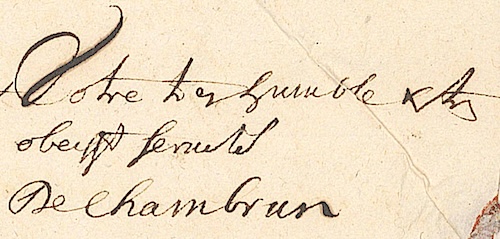 Votre tres humble & tres
obeysst servite
DeChambrun